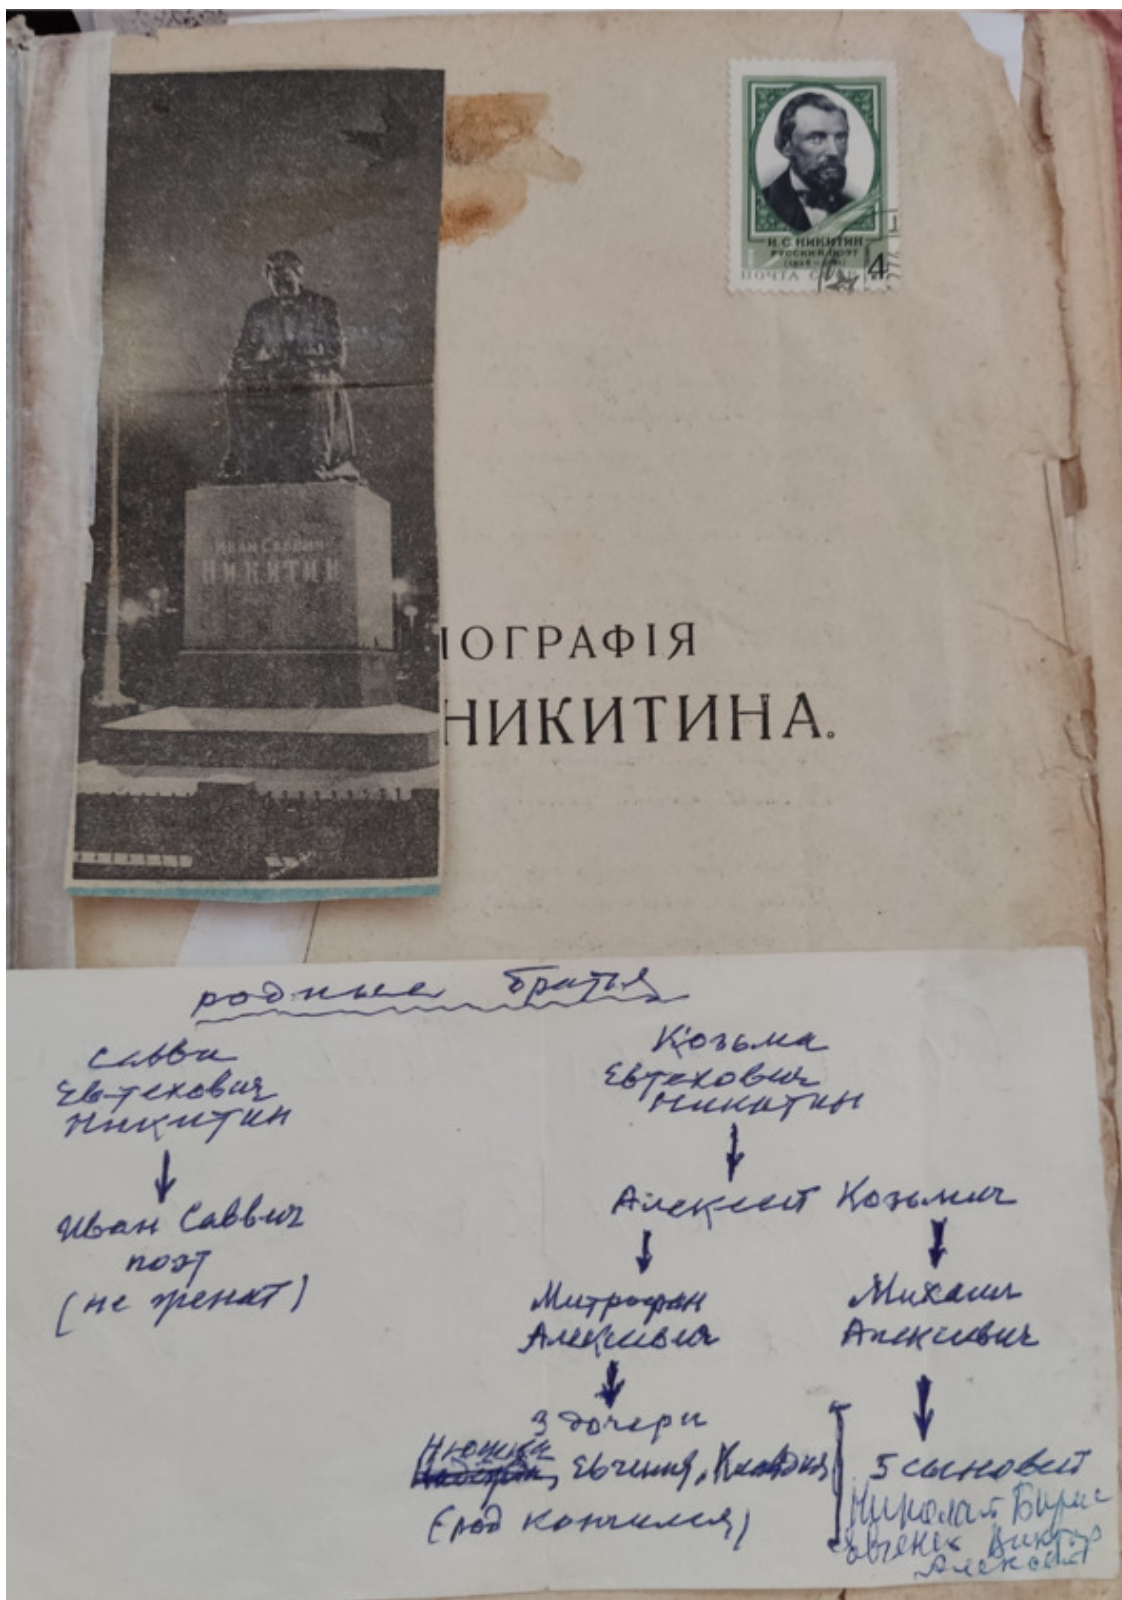 И. С. НИКИТИН
РУССКИЙ ПОЭТ
ПОЧТА
4
ИВАН САВВИЧ
НИКИТИН
ІОГРАФІЯ
НИКИТИНА.
родные братья
Савви
Евтехович
Никитин
Иван Саввич
поэт
(не женат)
Козьма
Евтехович
Никитин
Алексей Козьмич
Митрофан
Алексеевич
3 дочери
Нюшка
Евгения, Клавдия
(род кончился)
Михаил
Алексеевич
5 сыновей
Николай Борис
Евгений Виктор
Алексей